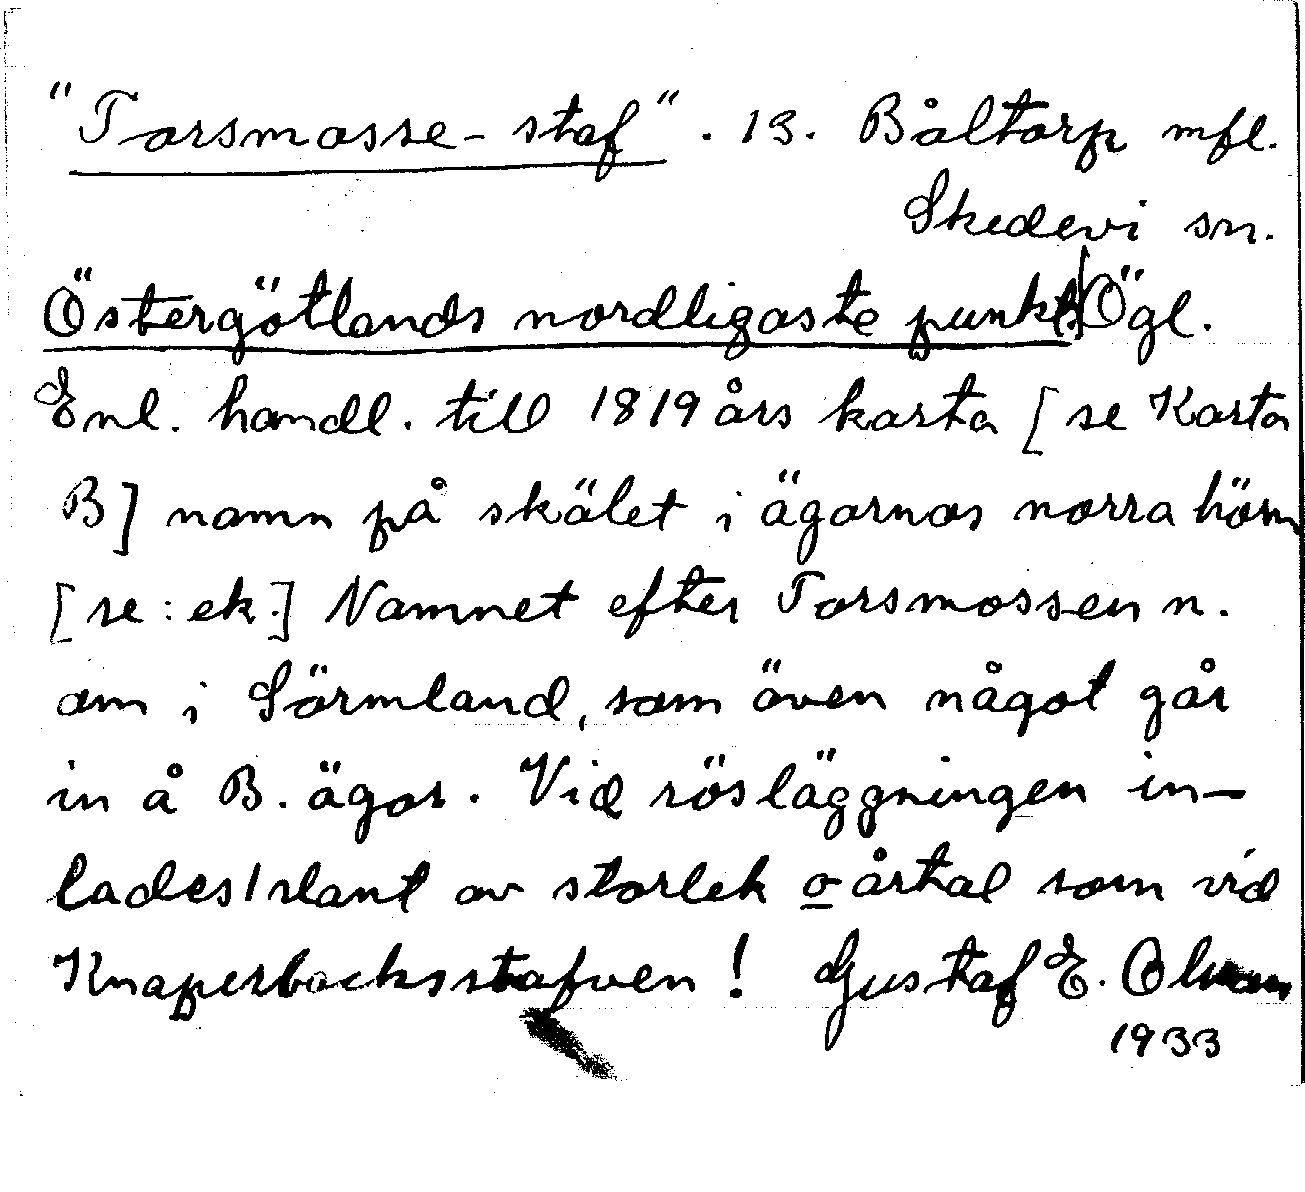 "Torsmosse-staf". 13. Båltorp mfl.
Skedevi sn.
Östergötlands nordligaste punkt. Ögl.
Enl. handl. till 1819 års karta [se Karta
B] namn på skälet i ägornas norra hörn
[se: ek.] Namnet efter Torsmossen n.
om i Sörmland, som även något går
in å B. ägor. Vid rösläggningen in-
lades 1 slant av storlek o årtal som vid
Knaperbacksstafven! Gustaf E.
1933